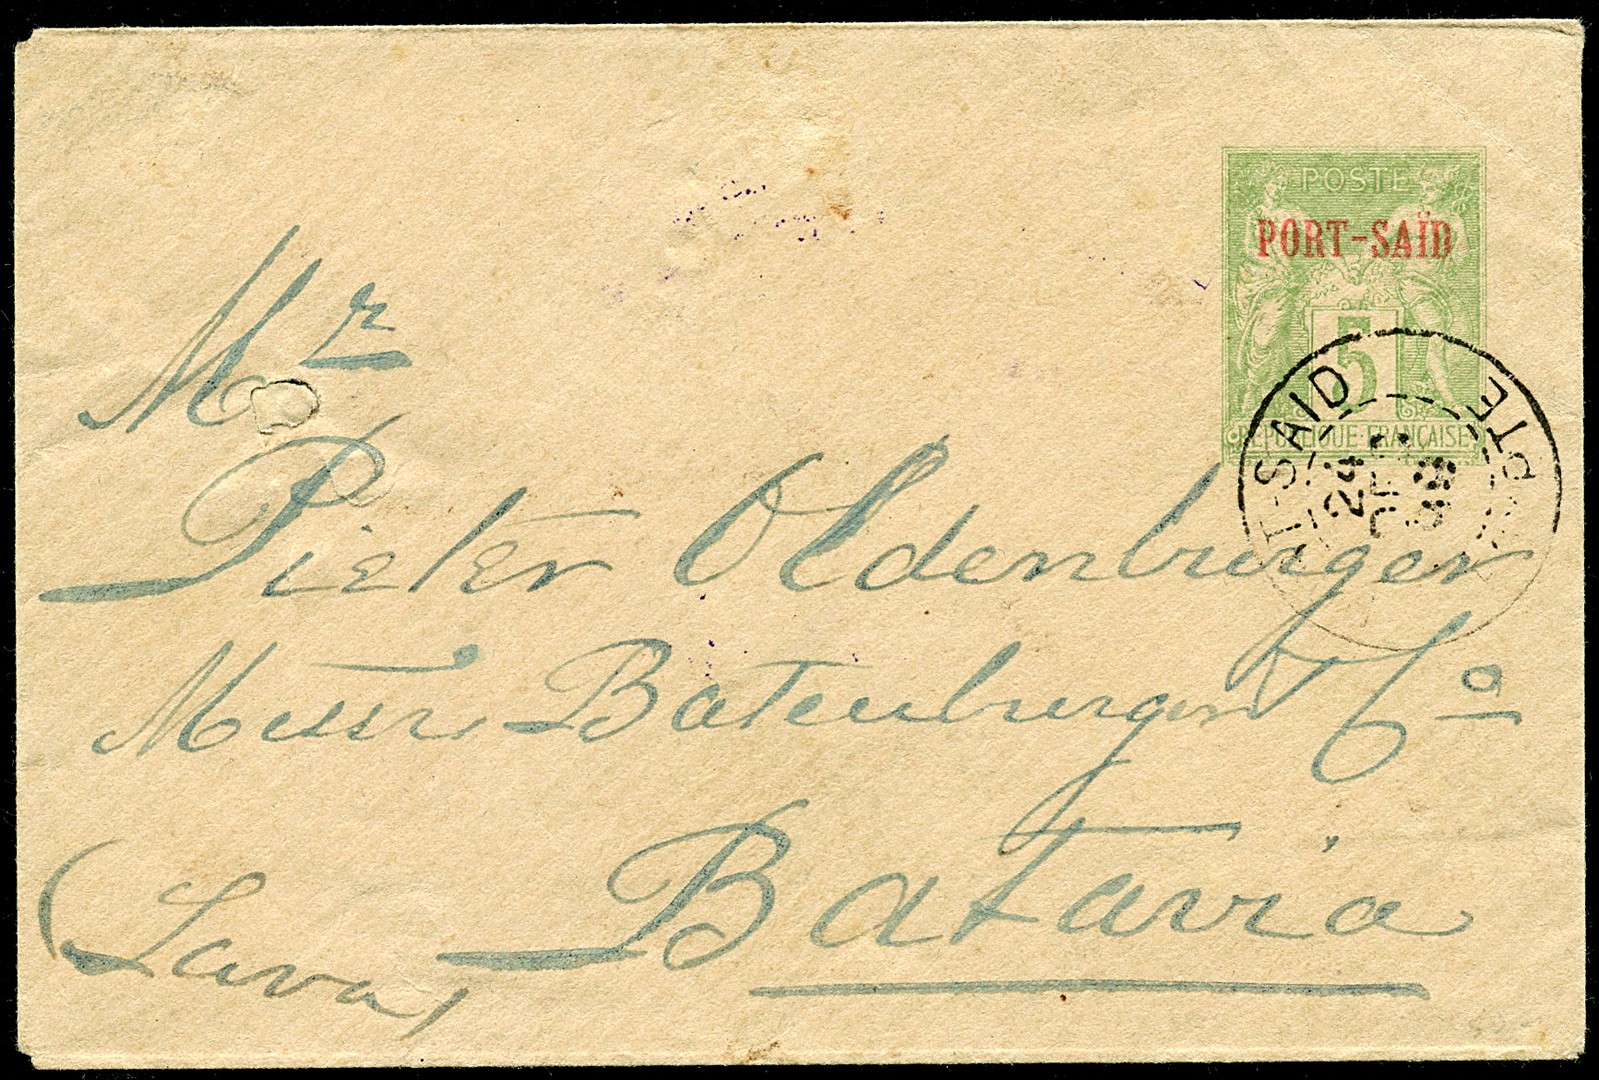 POSTE
PORT-SAÏD
5
RÉPUBLIQUE FRANÇAISE
T-SAID
24
DEC
99
Mr
Pieter Oldenburger
Messrs Batenburger & Co
Batavia
(Java)